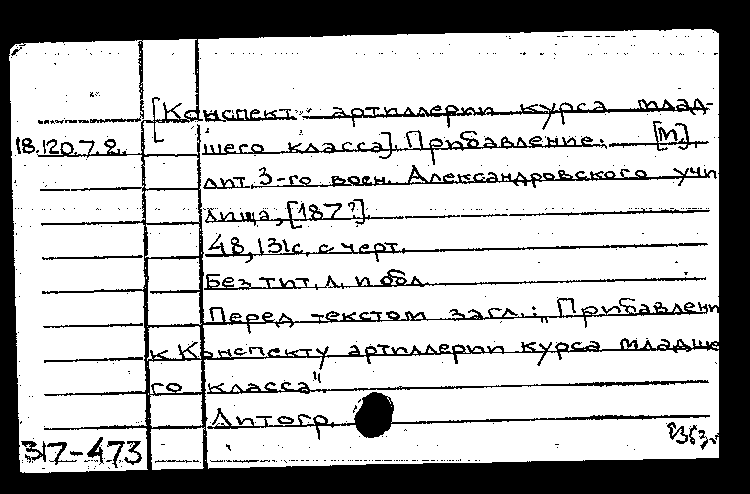 [Конспект артиллерии курса млад-
18.120.7.2. шего класса]. Прибавление. [М],
лит. 3-го воен. Александровского учи
лища, [187?].
48, 131с. с черт.
Без тит. л. и обл.
Перед текстом загл.: „Прибавлени
к Конспекту артиллерии курса младше
го класса"
Литогр.
317-473